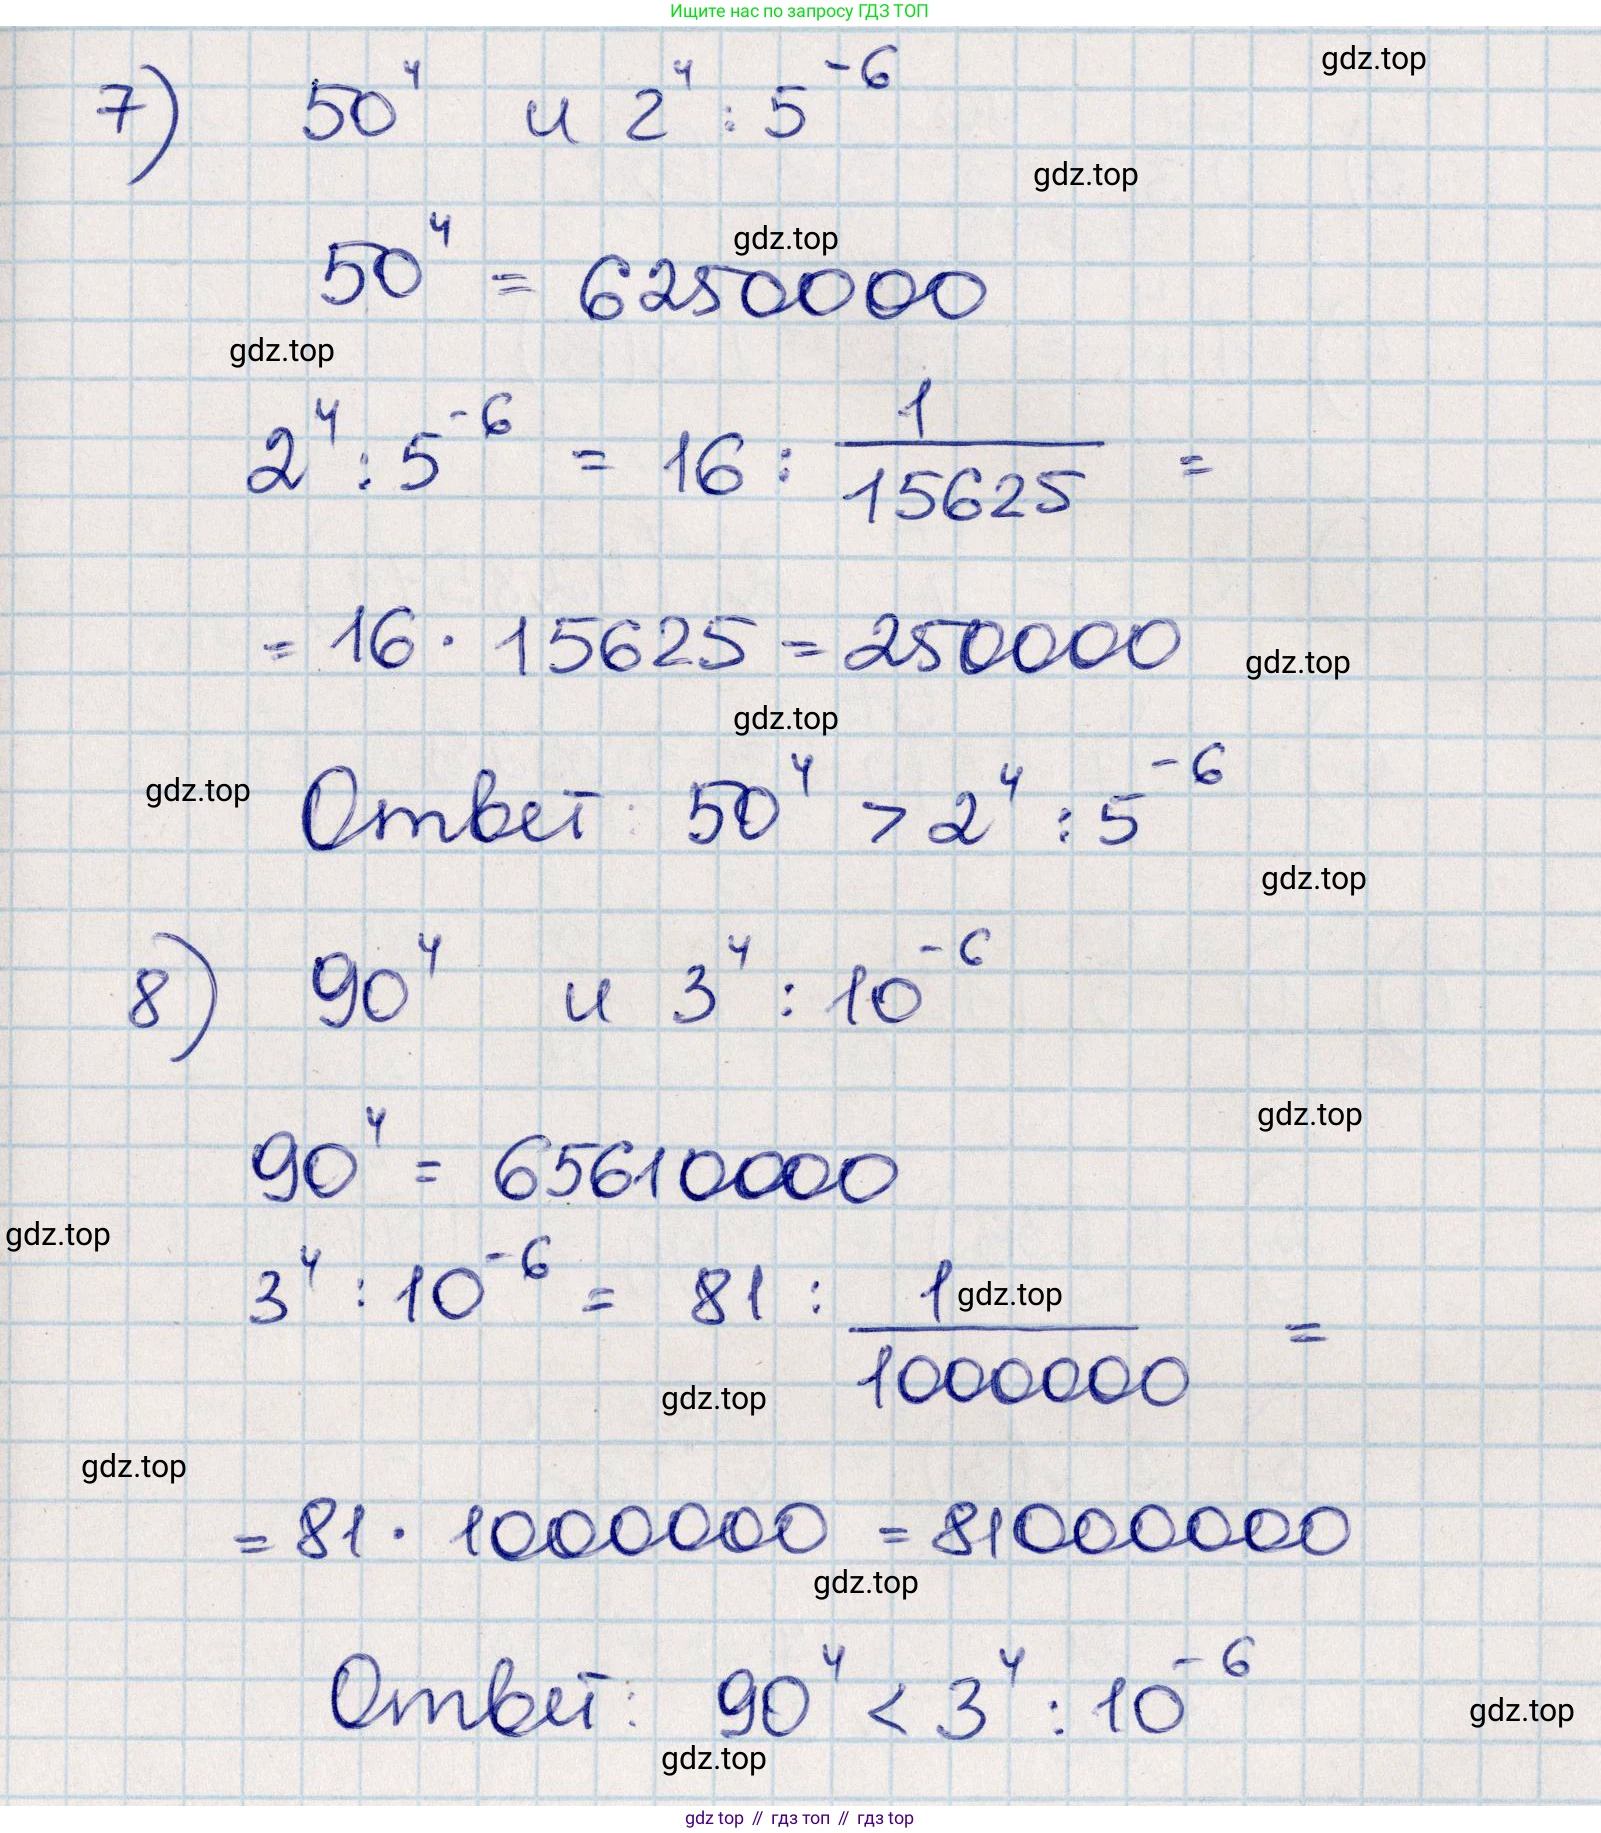 Ищите нас по запросу ГДЗ ТОП
gdz.top
7) 50⁴ и 2⁴ : 5⁻⁶
gdz.top
gdz.top
50⁴ = 6250000
gdz.top
2⁴ : 5⁻⁶ = 16 : 1/15625 =
= 16 · 15625 = 250000
gdz.top
gdz.top
gdz.top
Ответ: 50⁴ > 2⁴ : 5⁻⁶
gdz.top
8) 90⁴ и 3⁴ : 10⁻⁶
gdz.top
90⁴ = 65610000
gdz.top
3⁴ : 10⁻⁶ = 81 : 1/1000000 =
gdz.top
gdz.top
gdz.top
= 81 · 1000000 = 81000000
gdz.top
Ответ: 90⁴ < 3⁴ : 10⁻⁶
gdz.top
gdz.top
gdz top // гдз топ // гдз top